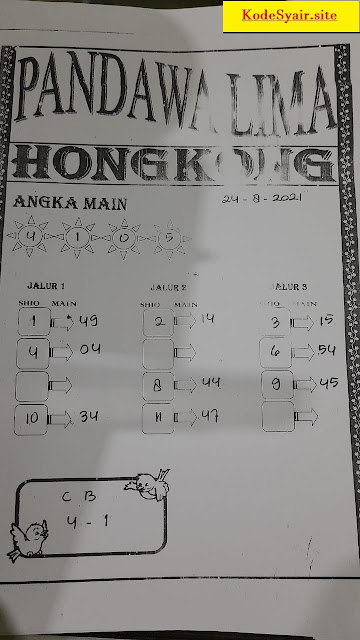 KodeSyair.site
PANDAWA LIMA
HONGKONG
ANGKA MAIN 24-8-2021
4 1 0 5
JALUR 1 JALUR 2 JALUR 3
SHIO MAIN SHIO MAIN SHIO MAIN
1 49 2 14 3 15
4 04 6 54
8 44 9 45
10 34 11 47
C B
4 - 1